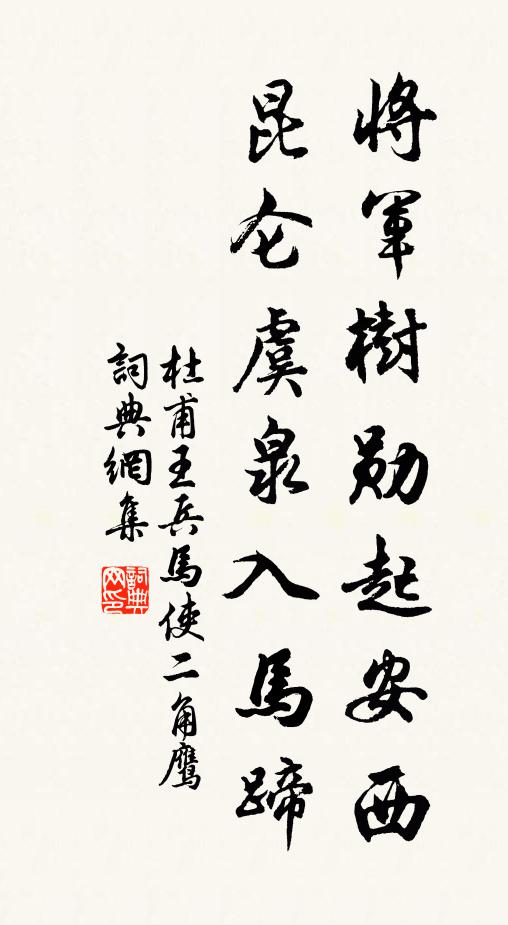 將軍樹勋起安西
昆仑虞泉入馬蹄
杜甫王兵馬使二角鹰
詞典網集
詞典
网印